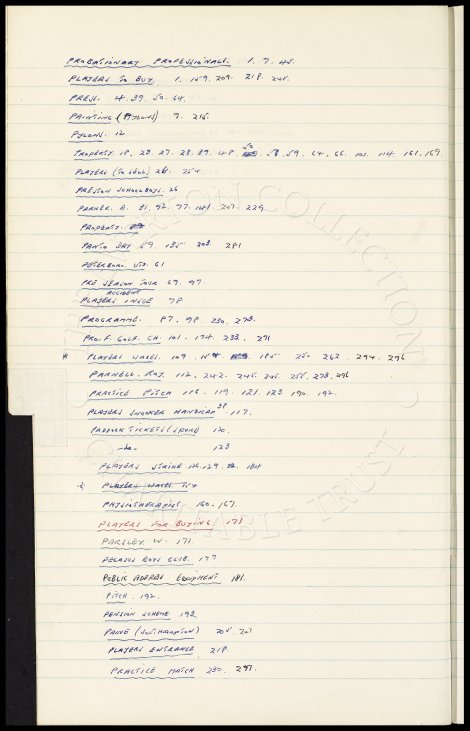 PROBATIONARY PROFESSIONALS. 1. 7. 45.
PLAYERS TO BUY. 1. 159. 209. 218. 245.
PRESS. 4. 39. 50. 64.
PAINTING (PYLONS) 7. 215.
PYLONS. 12
PROPERTY. 18. 23. 27. 28. 39. 48. 50 58. 59. 64. 66. 101. 114. 161. 169.
PLAYERS (TO SELL) 26. 254
PRESTON SCHOOLBOYS. 26
PARKER. A. 31. 92. 97. 141. 207. 229.
PROPERTY.
PANTO DAY 59. 135 208. 281
PETERBORO. UTD. 61
PRE SEASON TOUR 67. 97.
PLAYERS ACCIDENT INSCE 78
PROGRAMME. 87. 98. 230. 273.
PRO. F. GOLF. CH. 101. 174. 233. 271
* PLAYERS WAGES. 109. 154 185 250. 262. 294. 296
PARNELL. ROY. 112. 242. 245. 246. 255. 273. 296
PRACTICE PITCH 116. 119. 121. 123 190. 192.
PLAYERS SNOOKER HANDICAP 38 117.
PADDOCK TICKETS (SPURS) 120.
-do- 123
PLAYERS STRIKE 126. 129. 134
* PLAYERS WAGES 154
PHYSIOTHERAPIST 160. 167.
PLAYERS FOR BUYING 171
PARSLEY W. 171.
PEGASUS BOYS CLUB. 177
PUBLIC ADDRESS EQUIPMENT 181.
PITCH. 192.
PENSION SCHEME 192.
PAINE (SOUTHAMPTON) 205. 207
PLAYERS ENTRANCE 218.
PRACTICE MATCH 230. 297.
COLLECTION
TRUST